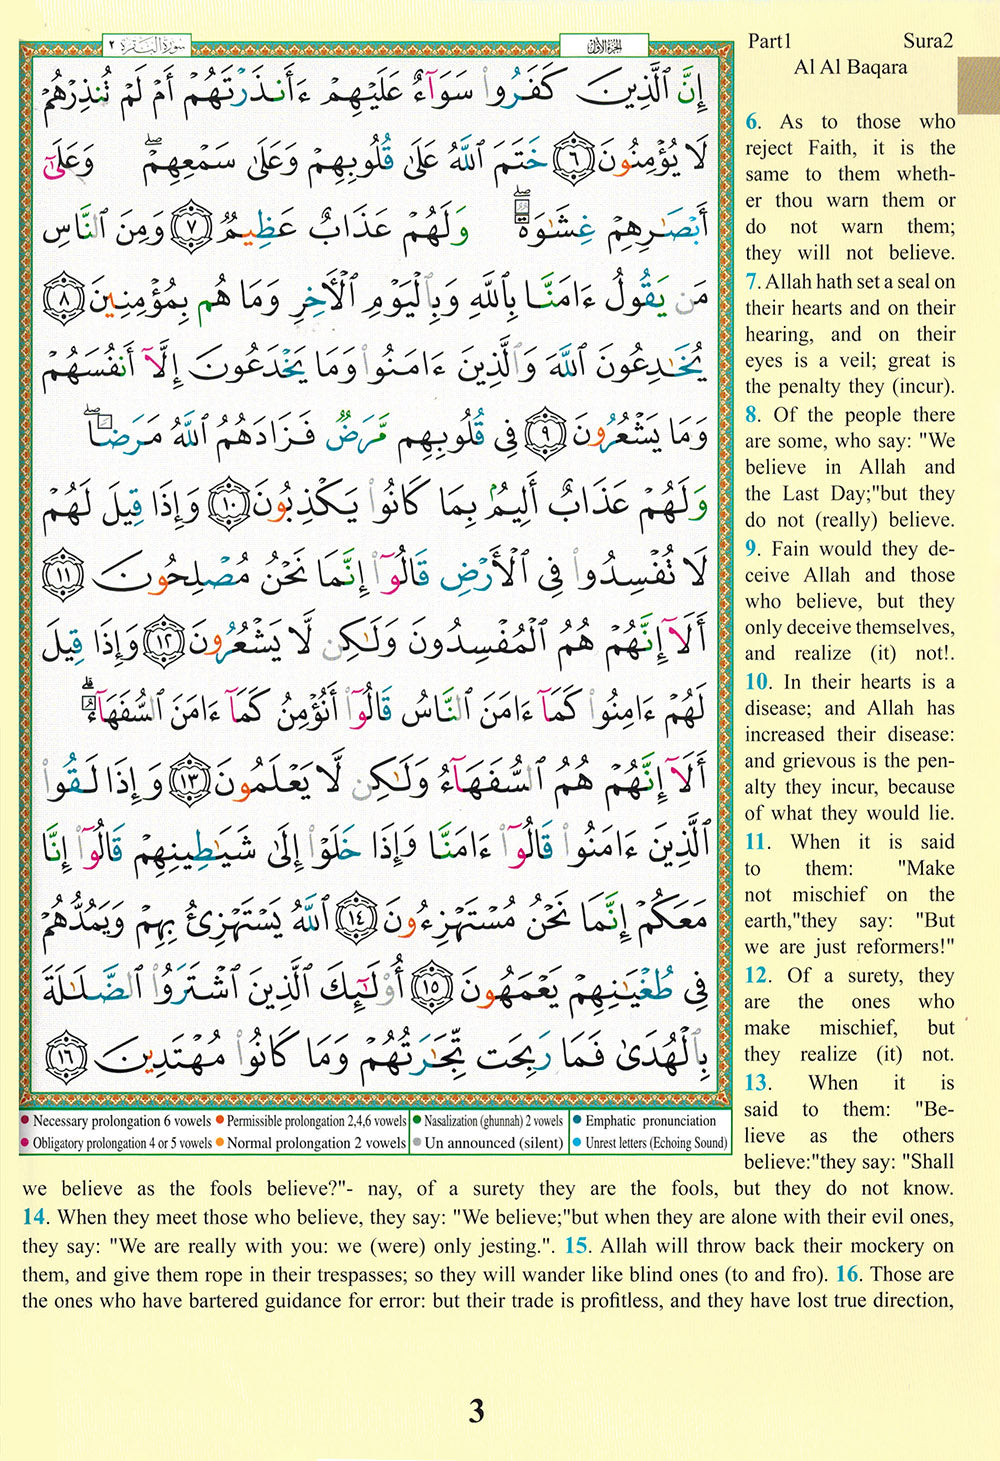 سورة البقرة ٢
الجزء الأول
Part1 Sura2
Al Al Baqara
إِنَّ ٱلَّذِينَ كَفَرُوا۟ سَوَآءٌ عَلَيْهِمْ ءَأَنذَرْتَهُمْ أَمْ لَمْ تُنذِرْهُمْ
لَا يُؤْمِنُونَ ٦ خَتَمَ ٱللَّهُ عَلَىٰ قُلُوبِهِمْ وَعَلَىٰ سَمْعِهِمْ ۖ وَعَلَىٰٓ
أَبْصَـٰرِهِمْ غِشَـٰوَةٌ ۖ وَلَهُمْ عَذَابٌ عَظِيمٌ ٧ وَمِنَ ٱلنَّاسِ
مَن يَقُولُ ءَامَنَّا بِٱللَّهِ وَبِٱلْيَوْمِ ٱلْـَٔاخِرِ وَمَا هُم بِمُؤْمِنِينَ ٨
يُخَـٰدِعُونَ ٱللَّهَ وَٱلَّذِينَ ءَامَنُوا۟ وَمَا يَخْدَعُونَ إِلَّآ أَنفُسَهُمْ
وَمَا يَشْعُرُونَ ٩ فِى قُلُوبِهِم مَّرَضٌ فَزَادَهُمُ ٱللَّهُ مَرَضًا ۖ
وَلَهُمْ عَذَابٌ أَلِيمٌۢ بِمَا كَانُوا۟ يَكْذِبُونَ ١٠ وَإِذَا قِيلَ لَهُمْ
لَا تُفْسِدُوا۟ فِى ٱلْأَرْضِ قَالُوٓا۟ إِنَّمَا نَحْنُ مُصْلِحُونَ ١١
أَلَآ إِنَّهُمْ هُمُ ٱلْمُفْسِدُونَ وَلَـٰكِن لَّا يَشْعُرُونَ ١٢ وَإِذَا قِيلَ
لَهُمْ ءَامِنُوا۟ كَمَآ ءَامَنَ ٱلنَّاسُ قَالُوٓا۟ أَنُؤْمِنُ كَمَآ ءَامَنَ ٱلسُّفَهَآءُ ۗ
أَلَآ إِنَّهُمْ هُمُ ٱلسُّفَهَآءُ وَلَـٰكِن لَّا يَعْلَمُونَ ١٣ وَإِذَا لَقُوا۟
ٱلَّذِينَ ءَامَنُوا۟ قَالُوٓا۟ ءَامَنَّا وَإِذَا خَلَوْا۟ إِلَىٰ شَيَـٰطِينِهِمْ قَالُوٓا۟ إِنَّا
مَعَكُمْ إِنَّمَا نَحْنُ مُسْتَهْزِءُونَ ١٤ ٱللَّهُ يَسْتَهْزِئُ بِهِمْ وَيَمُدُّهُمْ
فِى طُغْيَـٰنِهِمْ يَعْمَهُونَ ١٥ أُو۟لَـٰٓئِكَ ٱلَّذِينَ ٱشْتَرَوُا۟ ٱلضَّلَـٰلَةَ
بِٱلْهُدَىٰ فَمَا رَبِحَت تِّجَـٰرَتُهُمْ وَمَا كَانُوا۟ مُهْتَدِينَ ١٦
Necessary prolongation 6 vowels Permissible prolongation 2,4,6 vowels Nasalization (ghunnah) 2 vowels Emphatic pronunciation
Obligatory prolongation 4 or 5 vowels Normal prolongation 2 vowels Un announced (silent) Unrest letters (Echoing Sound)
6. As to those who
reject Faith, it is the
same to them wheth-
er thou warn them or
do not warn them;
they will not believe.
7. Allah hath set a seal on
their hearts and on their
hearing, and on their
eyes is a veil; great is
the penalty they (incur).
8. Of the people there
are some, who say: "We
believe in Allah and
the Last Day;"but they
do not (really) believe.
9. Fain would they de-
ceive Allah and those
who believe, but they
only deceive themselves,
and realize (it) not!.
10. In their hearts is a
disease; and Allah has
increased their disease:
and grievous is the pen-
alty they incur, because
of what they would lie.
11. When it is said
to them: "Make
not mischief on the
earth,"they say: "But
we are just reformers!"
12. Of a surety, they
are the ones who
make mischief, but
they realize (it) not.
13. When it is
said to them: "Be-
lieve as the others
believe:"they say: "Shall
we believe as the fools believe?"- nay, of a surety they are the fools, but they do not know.
14. When they meet those who believe, they say: "We believe;"but when they are alone with their evil ones,
they say: "We are really with you: we (were) only jesting.". 15. Allah will throw back their mockery on
them, and give them rope in their trespasses; so they will wander like blind ones (to and fro). 16. Those are
the ones who have bartered guidance for error: but their trade is profitless, and they have lost true direction,
3